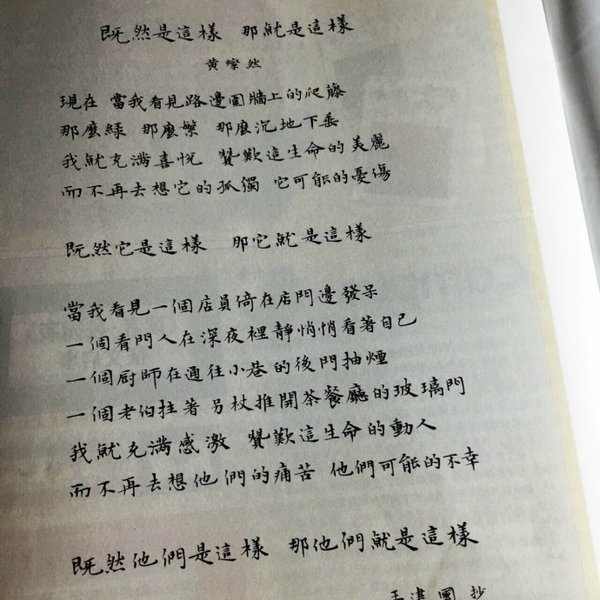 既然是這樣 那就是這樣
黄燦然
現在 當我看見路邊圍牆上的爬藤
那麼綠 那麼繁 那麼沉地下垂
我就充滿喜悅 贊歎這生命的美麗
而不再去想它的孤獨 它可能的憂傷
既然它是這樣 那它就是這樣
當我看見一個店員倚在店門邊發呆
一個看門人在深夜裡靜悄悄看著自己
一個厨師在通往小巷的後門抽煙
一個老伯拄著另杖推開茶餐廳的玻璃門
我就充滿感激 贊歎這生命的動人
而不再去想他們的痛苦 他們可能的不幸
既然他們是這樣 那他們就是這樣